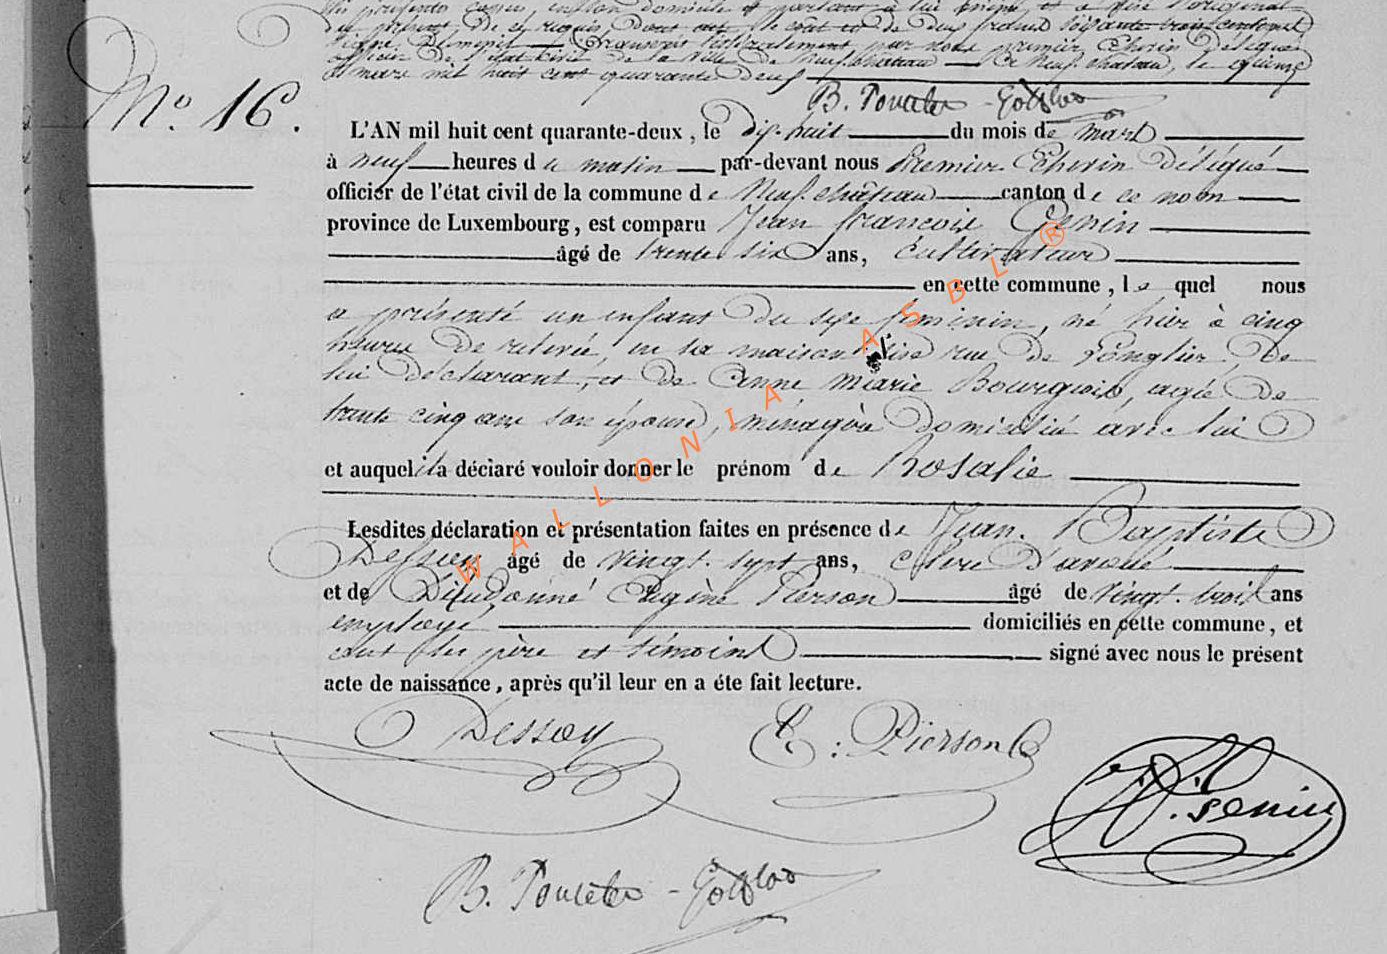 du présent, de ce requis, dont acte, le coût est de deux francs soixante trois centimes
signé Transcrit littéralement par nous premier Echevin délégué
officier de l'état civil de la ville de Neufchâteau — à Neufchâteau, le quinze
mars mil huit cent quarante deux
B. Poncelet
N° 16.
L'AN mil huit cent quarante-deux, le dix-huit du mois de mars
à neuf heures du matin par-devant nous Premier Echevin délégué
officier de l'état civil de la commune de Neufchâteau canton de ce nom
province de Luxembourg, est comparu Jean François Genin
âgé de trente six ans, Cultivateur
en cette commune, lequel nous
a présenté un enfant du sexe féminin, né hier à cinq
heures de relevée, en sa maison sise rue de Longlier, de
lui déclarant, et de Anne Marie Bourgeois, agée de
trente cinq ans son épouse, ménagère domicilié avec lui
et auquel il a déclaré vouloir donner le prénom de Rosalie
Lesdites déclaration et présentation faites en présence de Jean. Baptiste
Dessoy âgé de vingt-sept ans, clerc d'avoué
et de Dieudonné Eugène Pierson âgé de vingt-trois ans
employé domiciliés en cette commune, et
ont les père et témoins signé avec nous le présent
acte de naissance, après qu'il leur en a éte fait lecture.
Dessoy
E. Pierson
J. F. Genin
B. Poncelet
WALLONIA ASBL ®